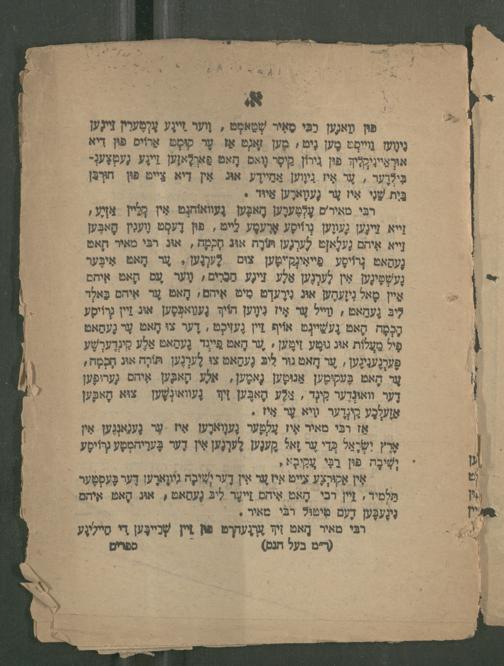 א.
פון וואנען רבי מאיר שטאמט, ווער זיינע עלטערין זיינען
גיווען ווייסט מען ניט, מען זאגט אז ער קומט ארויס פון דיא
אוראייניקליך פון נירון קיסר וואס האט פארלאזען זיינע געטצענ־
בילדער, ער איז גיווען אחיידע אונ אין דיא צייט פון חורבן
בית שני איז ער געווארען איוד.
רבי מאיר'ס עלטערען האבען געוואוהנט אין קליין אזיע,
זייא זיינען געווען גרויסע ארעמע לייט, פון דעסט וועגין האבען
זייא איהם געלאזט לערנען תורה אונ חכמה, אונ רבי מאיר האט
געהאט גרויסע פעאיגקייטען צום לערנען. ער האט איבער
געשטיגען אין לערנען אלע זיינע חברים, ווער עס האט איהם
איין מאל גיזעהען אונ גירעדט מיט איהם, האט ער איהם באלד
ליב געהאט, ווייל ער איז גיווען הויך געוואקסען אונ זיין גרויסע
חכמה האט געשיינט אויף זיין געזיכט, דער צו האט ער געהאט
פיל מעלות אונ גוטע זיטען, ער האט פיינד געהאט אלע קינדערשע
פערגעניגען, ער האט נור ליב געהאט צו לערנען תורה אונ חכמה,
ער האט בעקומען אגוטען נאמען, אלע האבען איהם גערופען
דער וואונדער קינד, אלע האבען זיך געוואונשען צוא האבען
אזעלכע קינדער וויא ער איז.
אז רבי מאיר איז עלטער געווארען איז ער געגאנגען אין
ארץ ישראל כדי ער זאל קענען לערנען אין דער בעריהמטע גרויסע
ישיבה פון רבי עקיבא.
אין אקורצע צייט איז ער אין דער ישיבה גיווארען דער בעסטער
תלמיד, זיין רבי האט איהם זייער ליב געהאט, אונ האט איהם
גיגעבען דעם טיטול רבי מאיר.
רבי מאיר האט זיך ערנעהרט פון זיין שרייבען די הייליגע
(ר"מ בעל הנס) ספרים